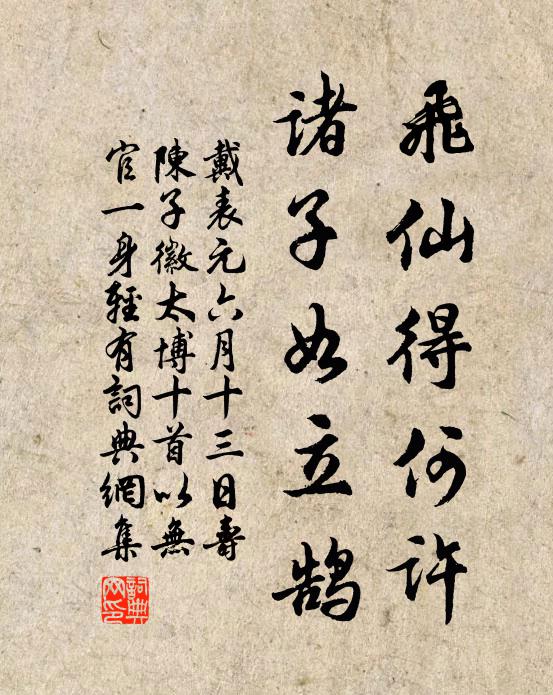 飛仙得何許
諸子如立鵠
戴表元六月十三日壽
陳子徽太博十首以無
官一身輕有詞典網集
詞典網印